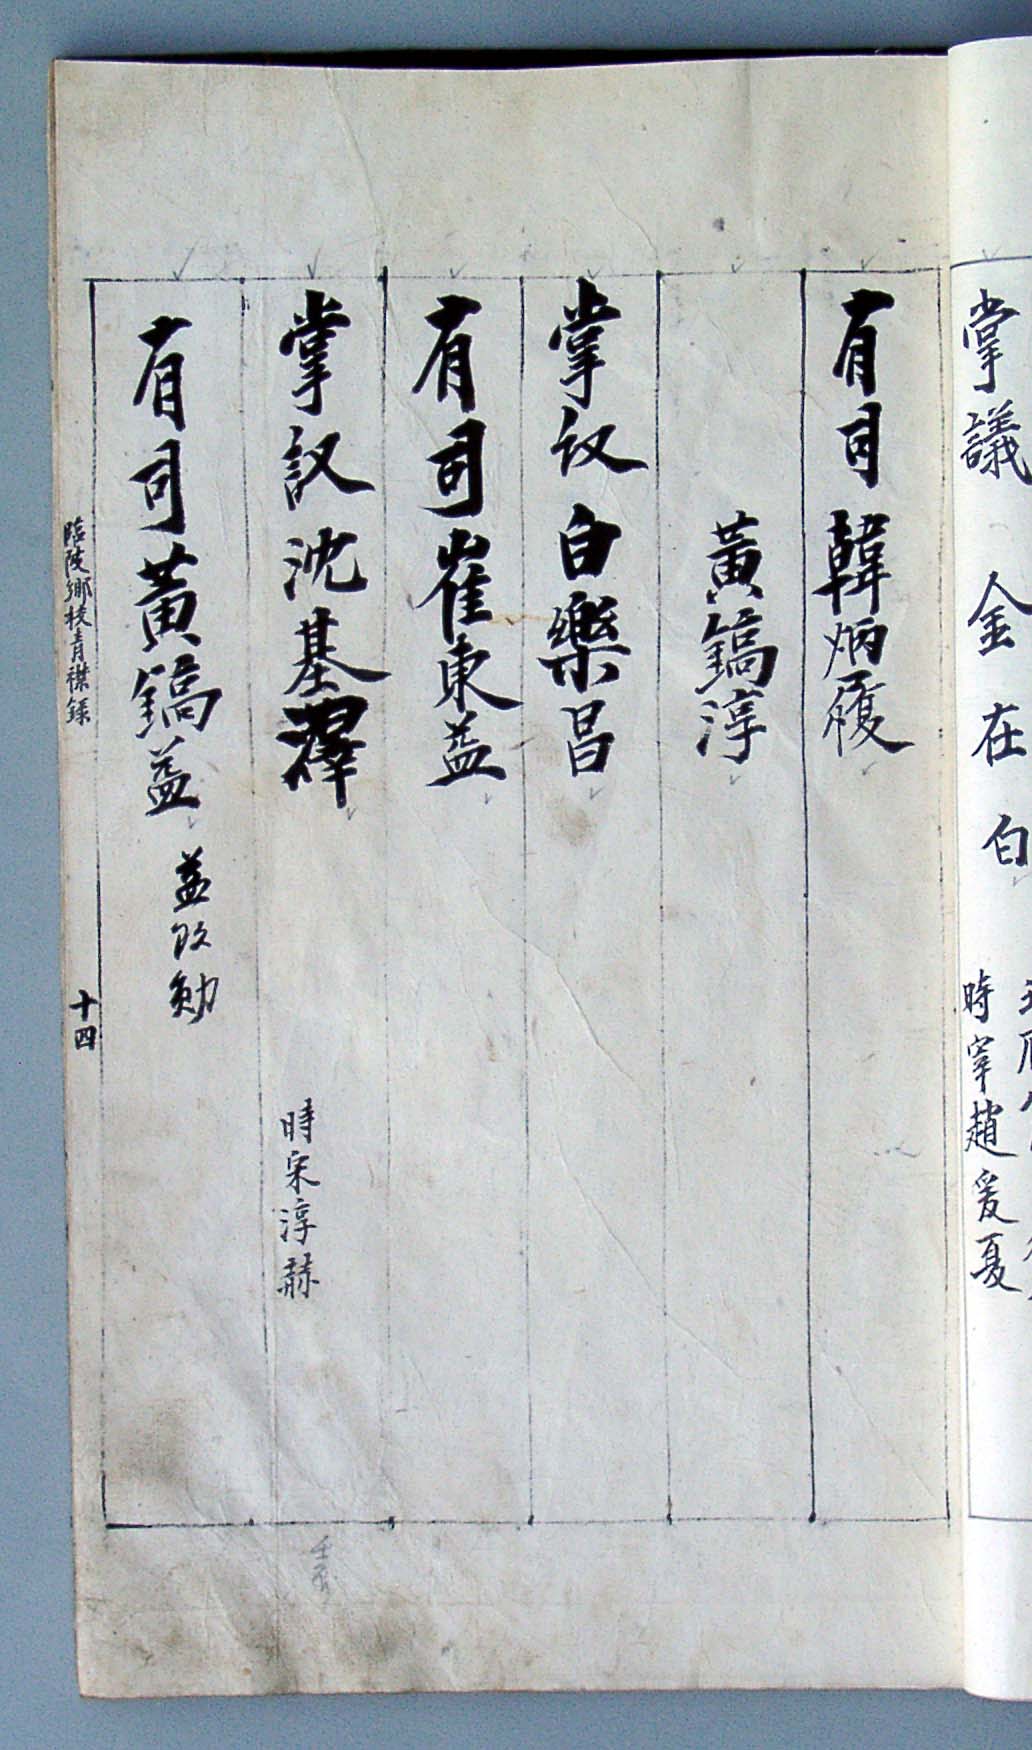 掌議 金在白
時宰趙爰夏
有司 韓炳履
黃鎬淳
掌议 白樂昌
有司 崔東益
掌议 沈基澤
時宋淳赫
有司 黃鎬益 益改勉
臨陂鄉校青襟錄
十四